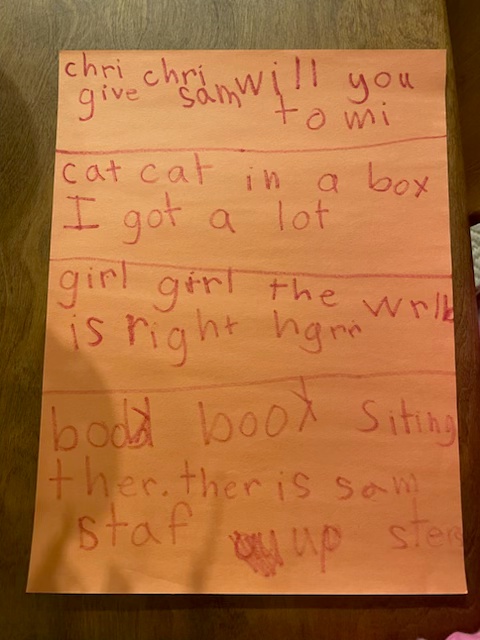 chri chri will you
give sam to mi
cat cat in a box
I got a lot
girl girl the wrlb
is right hgrr
book siting
ther. ther is sam
staf up sters